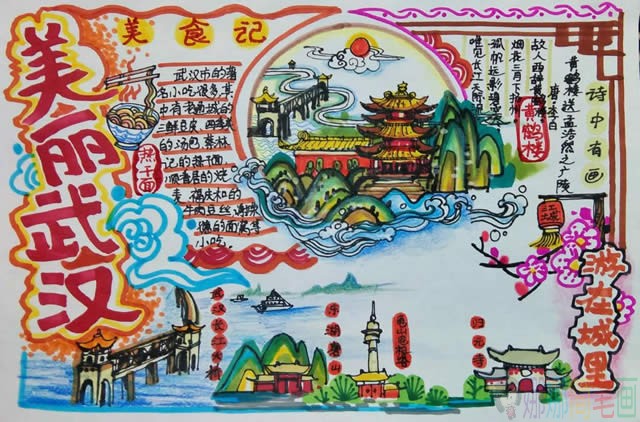 美丽武汉
美食记
武汉市的著
名小吃很多其
中有老通城的
三鲜豆皮 四季美
的汤包 蔡林
记的热干面
顺香居的烧
麦 福庆和的
牛肉豆丝
的面窝等
小吃.
热干面
诗中有画
黄鹤楼送孟浩然之广陵
唐·李白
故人西辞黄鹤楼
烟花三月下扬州
孤帆远影碧空尽
唯见长江天际流
黄鹤楼
游在城里
武汉长江大桥
龟山电视塔
归元寺